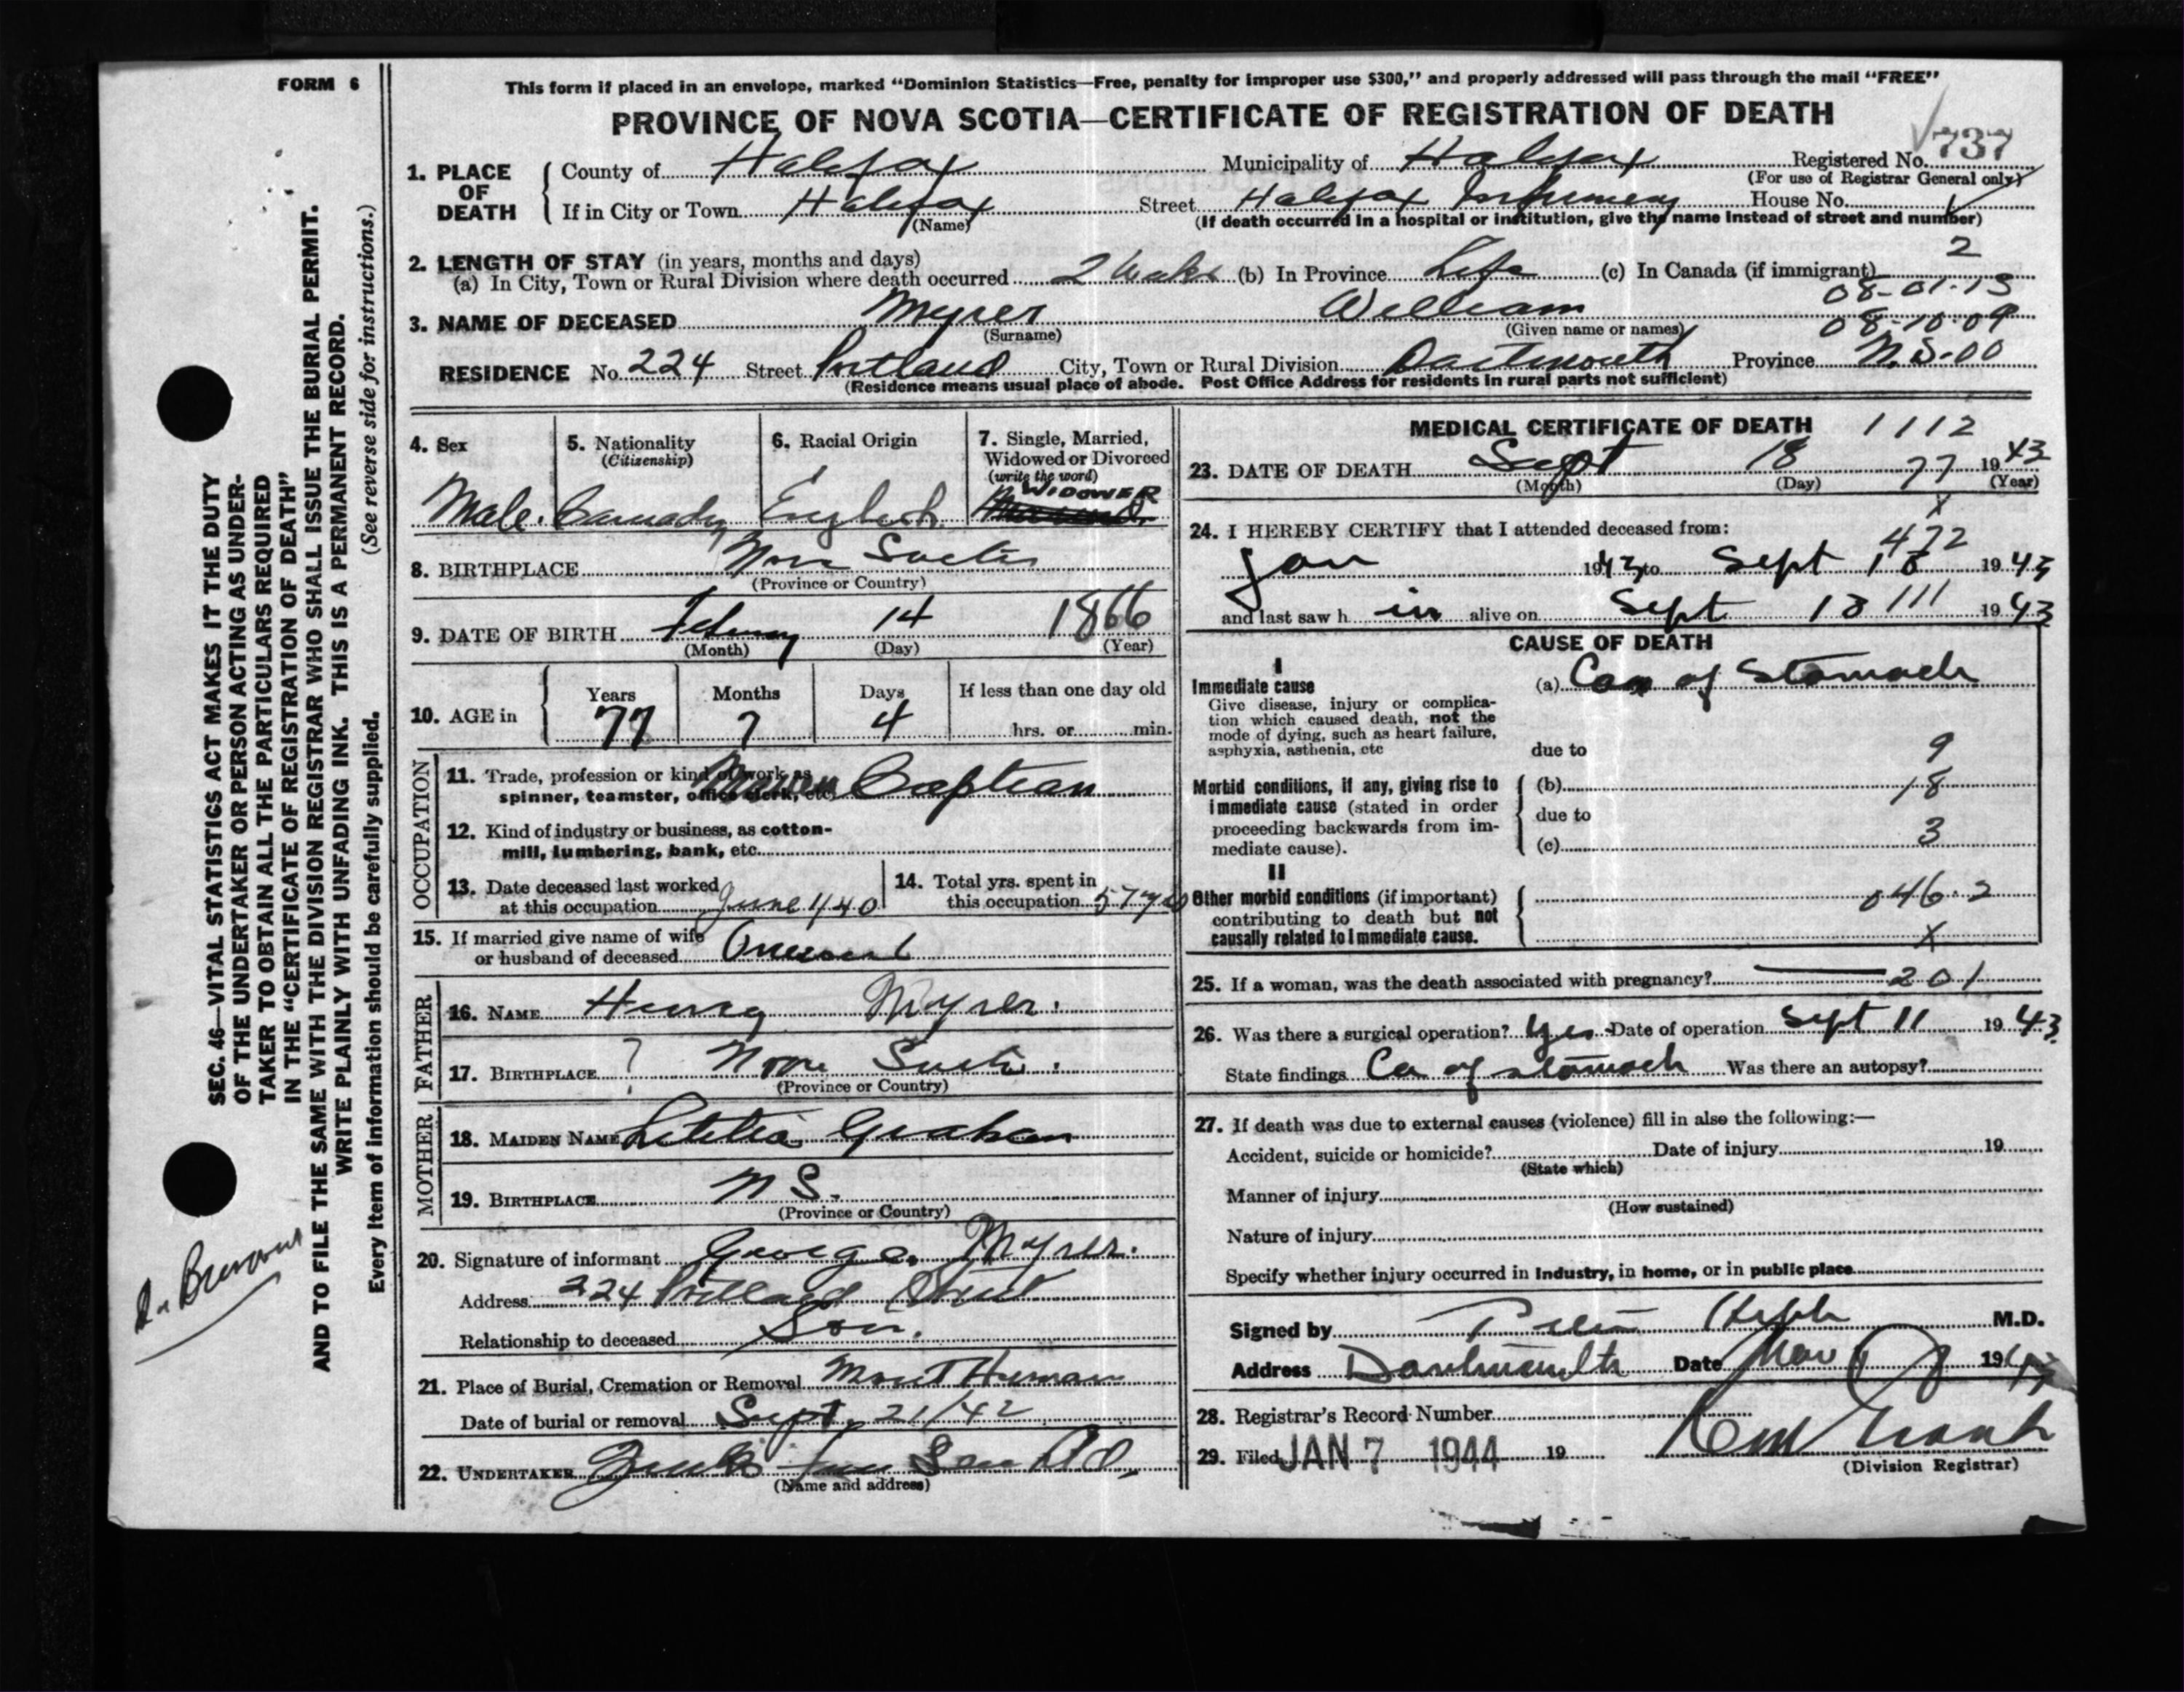 FORM 6
This form if placed in an envelope, marked "Dominion Statistics—Free, penalty for improper use $300," and properly addressed will pass through the mail "FREE"
PROVINCE OF NOVA SCOTIA—CERTIFICATE OF REGISTRATION OF DEATH
737
1. PLACE OF DEATH County of Halifax Municipality of Halifax Registered No.
(For use of Registrar General only)
If in City or Town Halifax Street Halifax Infirmary House No.
(Name) (If death occurred in a hospital or institution, give the name instead of street and number)
2. LENGTH OF STAY (in years, months and days) 2
(a) In City, Town or Rural Division where death occurred 2 Weeks (b) In Province Life (c) In Canada (if immigrant)
08-01-13
3. NAME OF DECEASED Myrer William 08-10-09
(Surname) (Given name or names)
RESIDENCE No. 224 Street Portland City, Town or Rural Division Dartmouth Province N.S-00
(Residence means usual place of abode. Post Office Address for residents in rural parts not sufficient)
4. Sex
Male.
5. Nationality
(Citizenship)
6. Racial Origin
English
7. Single, Married, Widowed or Divorced
(write the word)
WIDOWER
8. BIRTHPLACE Nova Scotia
(Province or Country)
9. DATE OF BIRTH February 14 1866
(Month) (Day) (Year)
10. AGE in Years Months Days If less than one day old
77 7 4 hrs. or min.
OCCUPATION
11. Trade, profession or kind of work as
spinner, teamster, office clerk, etc. Captian
12. Kind of industry or business, as cotton-
mill, lumbering, bank, etc.
13. Date deceased last worked
at this occupation June 1940
14. Total yrs. spent in
this occupation 57 yrs
15. If married give name of wife
or husband of deceased
FATHER
16. NAME Henry Myrer.
17. BIRTHPLACE ? Nova Scotia.
(Province or Country)
MOTHER
18. MAIDEN NAME Letitia Graham
19. BIRTHPLACE N S.
(Province or Country)
20. Signature of informant George Myrer.
Address 224 Portland Street
Relationship to deceased Son.
21. Place of Burial, Cremation or Removal Mount Herman
Date of burial or removal Sept. 21/42
22. UNDERTAKER Son Ltd.
(Name and address)
MEDICAL CERTIFICATE OF DEATH 1112
23. DATE OF DEATH Sept 18 77 1943
(Month) (Day) (Year)
x
24. I HEREBY CERTIFY that I attended deceased from:
472
Jan 1943 to Sept 18 1943
and last saw h im alive on Sept 18 111 1943
CAUSE OF DEATH
I
Immediate cause (a) Ca of Stomach
Give disease, injury or complica-
tion which caused death, not the
mode of dying, such as heart failure,
asphyxia, asthenia, etc due to 9
Morbid conditions, if any, giving rise to (b) 18
immediate cause (stated in order
proceeding backwards from im- due to
mediate cause). (c) 3
II
Other morbid conditions (if important) 046.2
contributing to death but not
causally related to immediate cause. X
25. If a woman, was the death associated with pregnancy? — 201
26. Was there a surgical operation? Yes Date of operation Sept 11 1943
State findings Ca of stomach Was there an autopsy?
27. If death was due to external causes (violence) fill in also the following:—
Accident, suicide or homicide? Date of injury 19
(State which)
Manner of injury
(How sustained)
Nature of injury
Specify whether injury occurred in industry, in home, or in public place
Signed by M.D.
Address Dartmouth Date Nov 1943
28. Registrar's Record Number
29. Filed JAN 7 1944 19
(Division Registrar)
SEC. 46—VITAL STATISTICS ACT MAKES IT THE DUTY
OF THE UNDERTAKER OR PERSON ACTING AS UNDER-
TAKER TO OBTAIN ALL THE PARTICULARS REQUIRED
IN THE "CERTIFICATE OF REGISTRATION OF DEATH"
AND TO FILE THE SAME WITH THE DIVISION REGISTRAR WHO SHALL ISSUE THE BURIAL PERMIT.
WRITE PLAINLY WITH UNFADING INK. THIS IS A PERMANENT RECORD.
Every item of information should be carefully supplied. (See reverse side for instructions.)